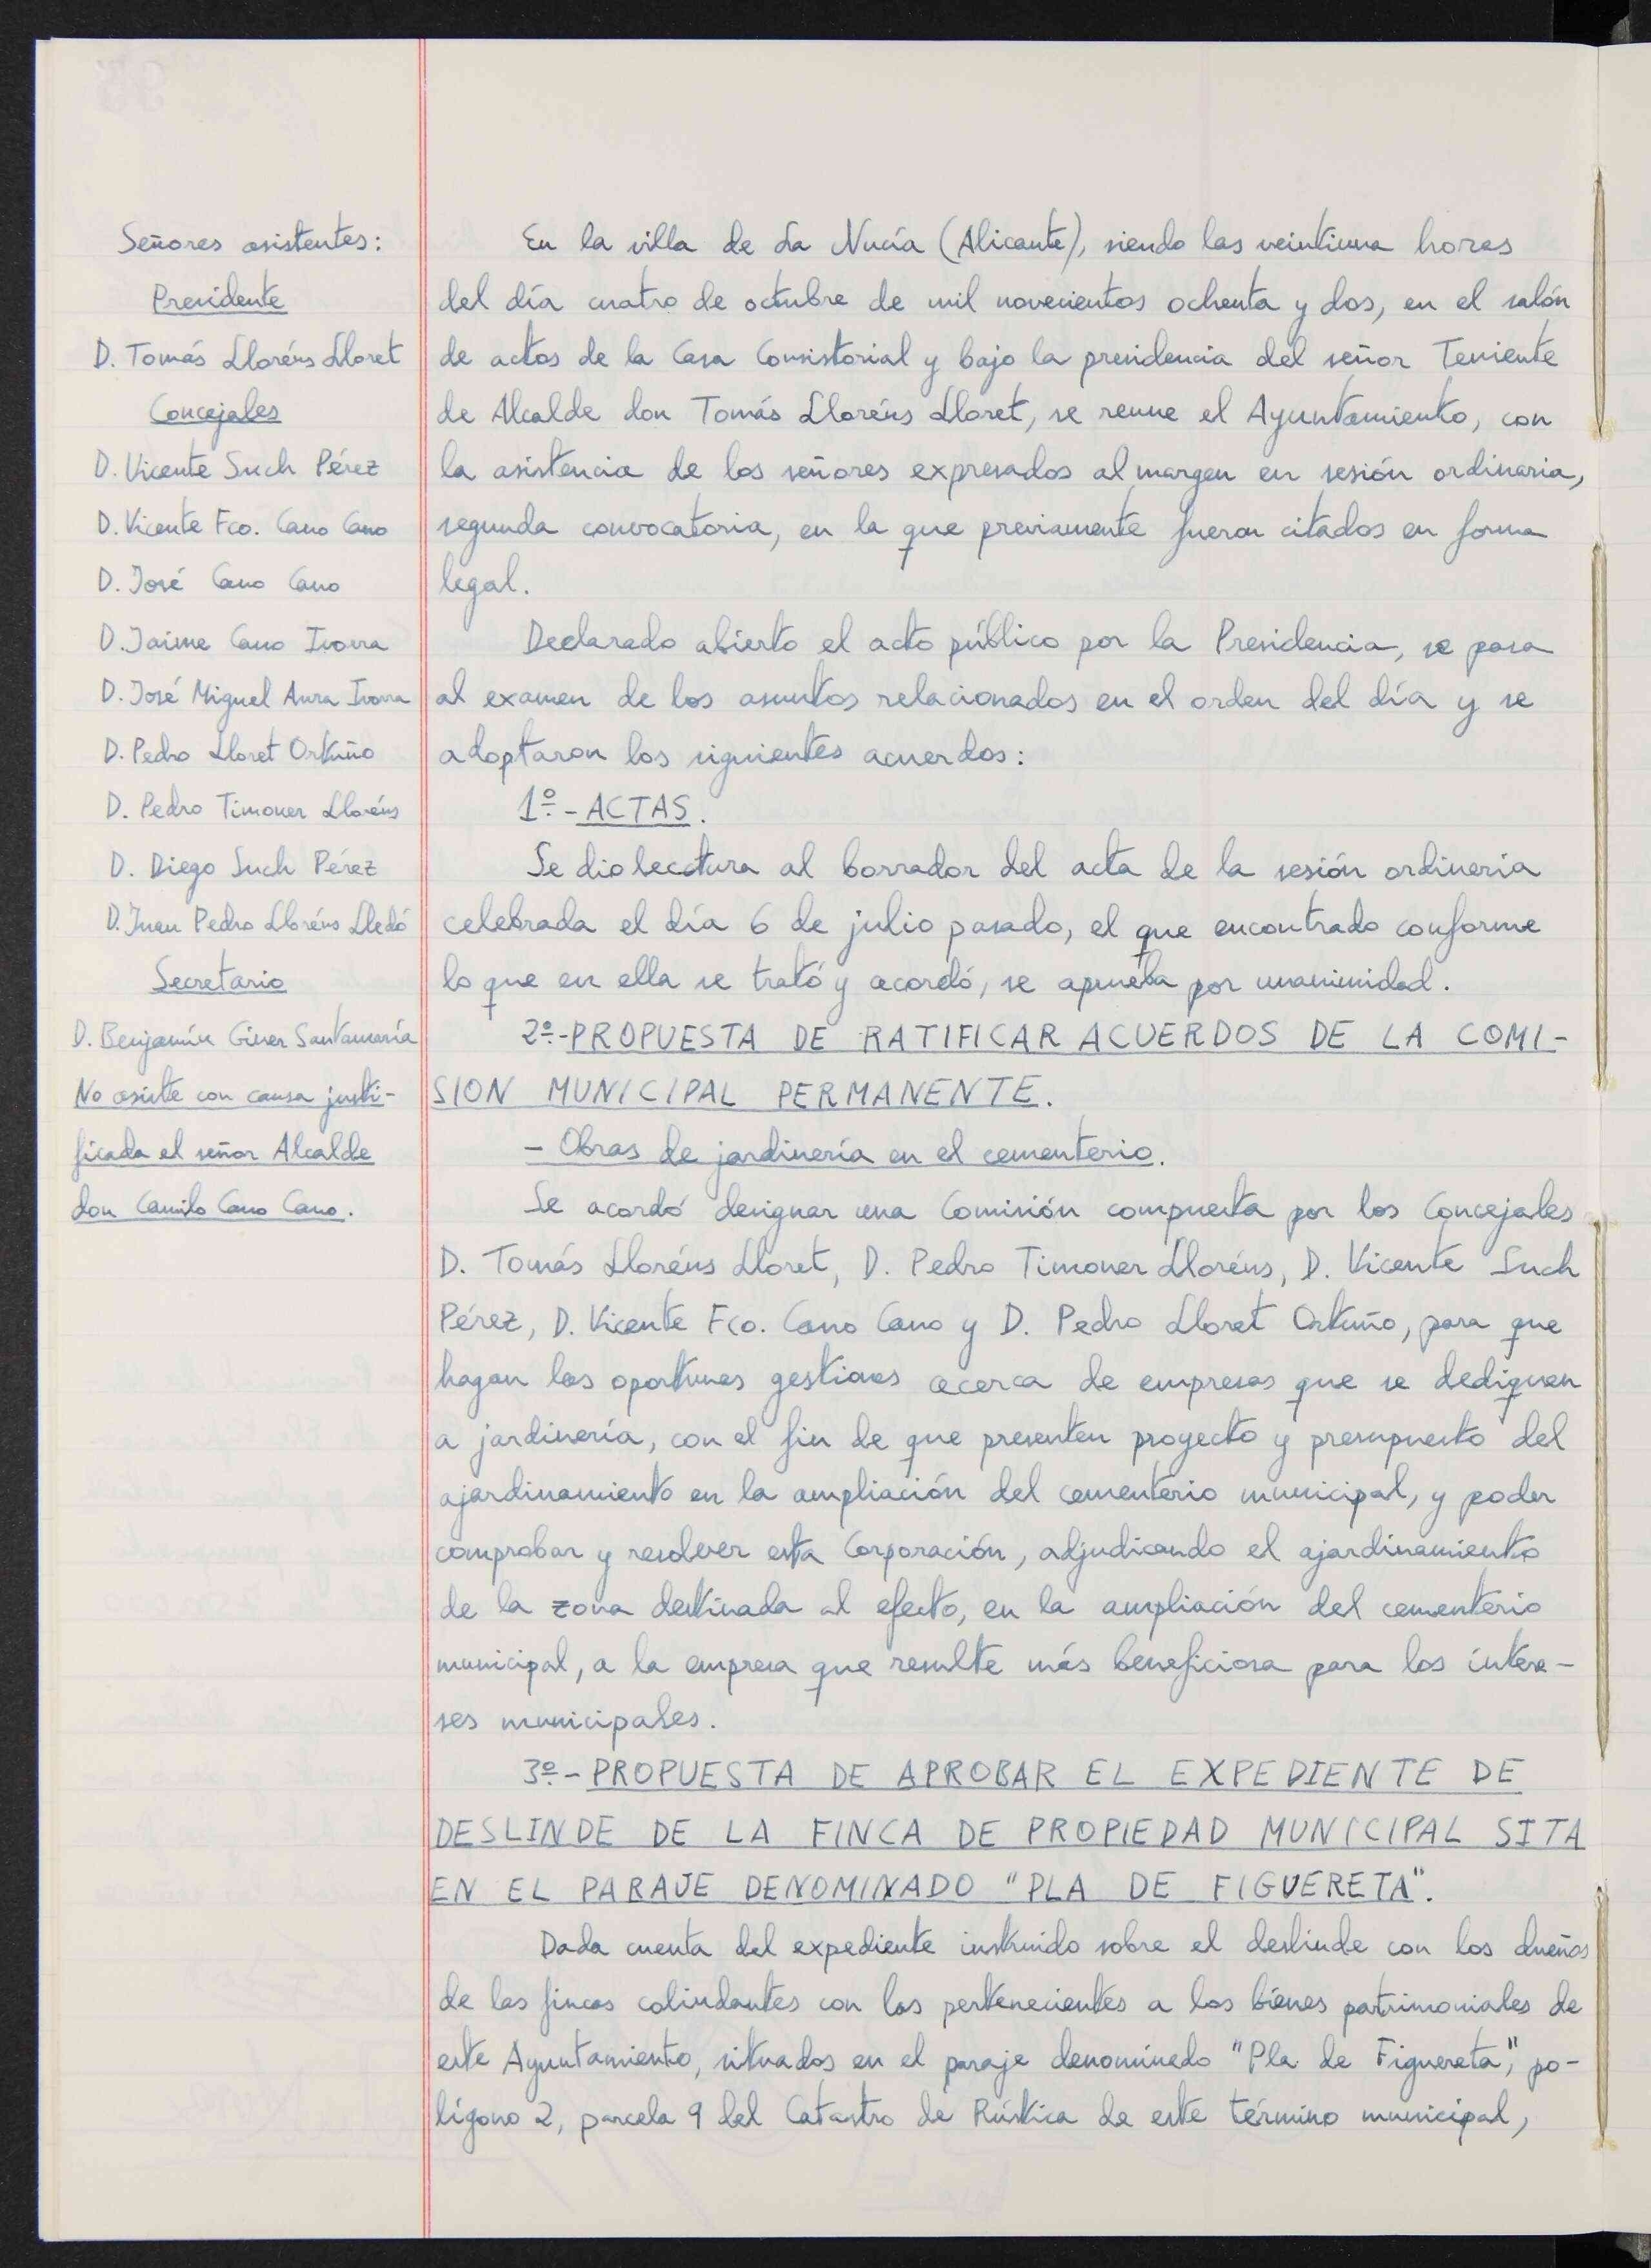 Señores asistentes:
Presidente
D. Tomás Lloréns Lloret
Concejales
D. Vicente Such Pérez
D. Vicente Fco. Cano Cano
D. José Cano Cano
D. Jaime Cano Ivorra
D. José Miguel Aura Ivorra
D. Pedro Lloret Ortuño
D. Pedro Timoner Lloréns
D. Diego Such Pérez
D. Juan Pedro Lloréns Lledó
Secretario
D. Benjamín Giner Santamaría
No asiste con causa justi-
ficada el señor Alcalde
don Camilo Cano Cano.
En la villa de La Nucía (Alicante), siendo las veintiuna horas
del día cuatro de octubre de mil novecientos ochenta y dos, en el salón
de actos de la Casa Consistorial y bajo la presidencia del señor Teniente
de Alcalde don Tomás Lloréns Lloret, se reune el Ayuntamiento, con
la asistencia de los señores expresados al margen en sesión ordinaria,
segunda convocatoria, en la que previamente fueron citados en forma
legal.
Declarado abierto el acto público por la Presidencia, se pasa
al examen de los asuntos relacionados en el orden del día y se
adoptaron los siguientes acuerdos:
1º.- ACTAS.
Se dio lectura al borrador del acta de la sesión ordinaria
celebrada el día 6 de julio pasado, el que encontrado conforme
lo que en ella se trató y acordó, se aprueba por unanimidad.
2º.- PROPUESTA DE RATIFICAR ACUERDOS DE LA COMI-
SION MUNICIPAL PERMANENTE.
- Obras de jardinería en el cementerio.
Se acordó designar una Comisión compuesta por los Concejales
D. Tomás Lloréns Lloret, D. Pedro Timoner Lloréns, D. Vicente Such
Pérez, D. Vicente Fco. Cano Cano y D. Pedro Lloret Ortuño, para que
hagan las oportunas gestiones acerca de empresas que se dediquen
a jardinería, con el fin de que presenten proyecto y presupuesto del
ajardinamiento en la ampliación del cementerio municipal, y poder
comprobar y resolver esta Corporación, adjudicando el ajardinamiento
de la zona destinada al efecto, en la ampliación del cementerio
municipal, a la empresa que resulte más beneficiosa para los intere-
ses municipales.
3º.- PROPUESTA DE APROBAR EL EXPEDIENTE DE
DESLINDE DE LA FINCA DE PROPIEDAD MUNICIPAL SITA
EN EL PARAJE DENOMINADO "PLA DE FIGUERETA".
Dada cuenta del expediente instruido sobre el deslinde con los dueños
de las fincas colindantes con las pertenecientes a los bienes patrimoniales de
este Ayuntamiento, situados en el paraje denominado "Pla de Figuereta", po-
lígono 2, parcela 9 del Catastro de Rústica de este término municipal,